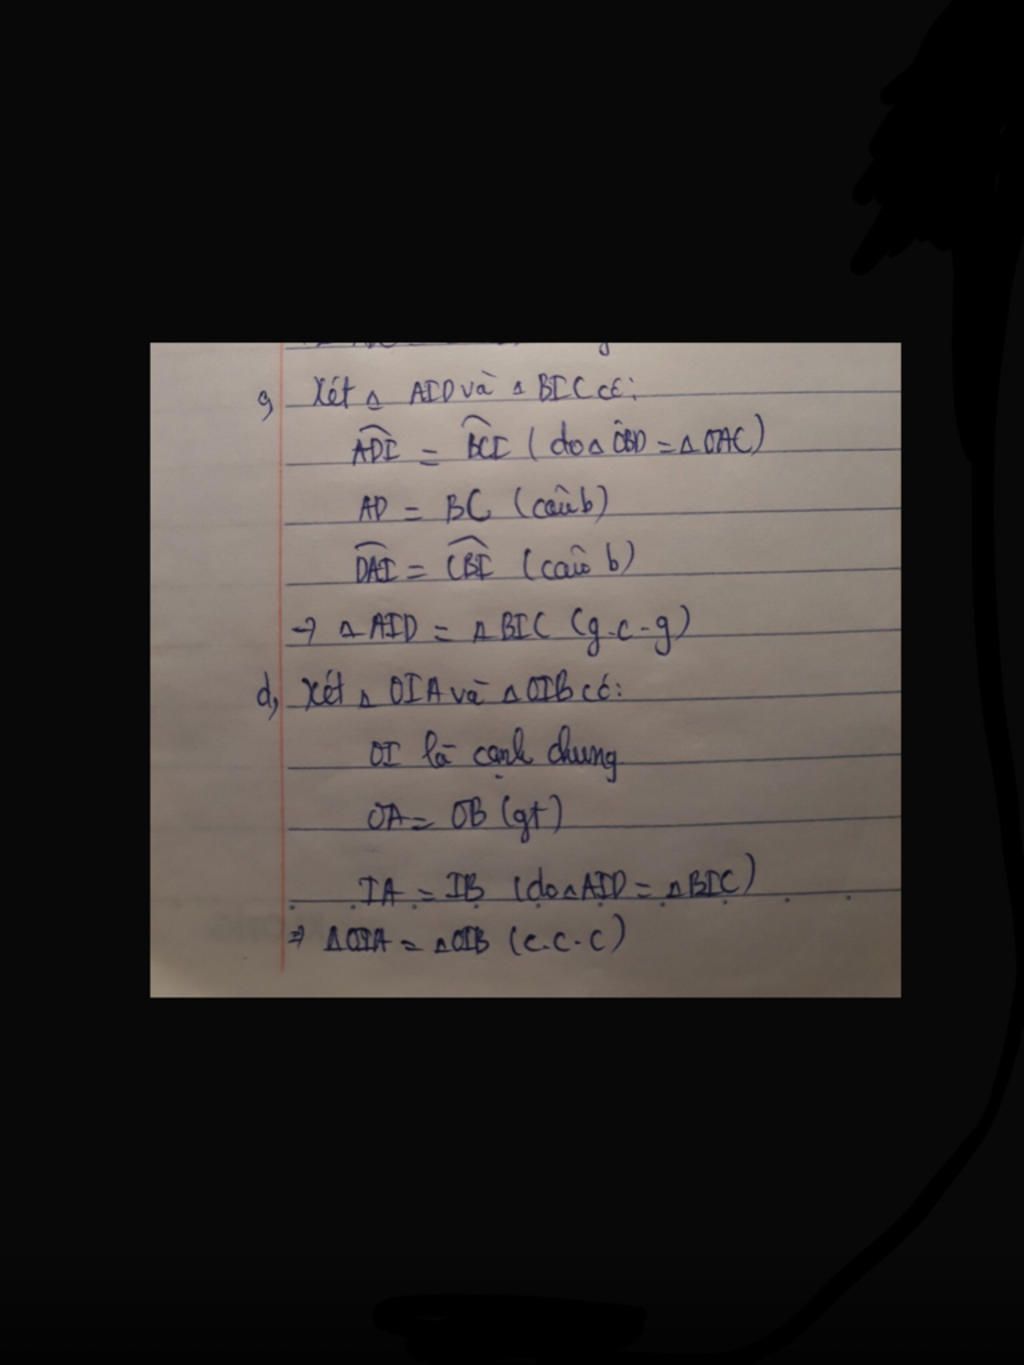 c, Xét Δ AID và Δ BIC có:
ADI = BCI ( do Δ OBD = Δ OAC)
AD = BC (câu b)
DAI = CBI (câu b)
→ Δ AID = Δ BIC (g-c-g)
d, Xét Δ OIA và Δ OIB có:
OI là cạnh chung
OA = OB (gt)
IA = IB (do Δ AID = Δ BIC)
⇒ Δ OIA = Δ OIB (c.c.c)